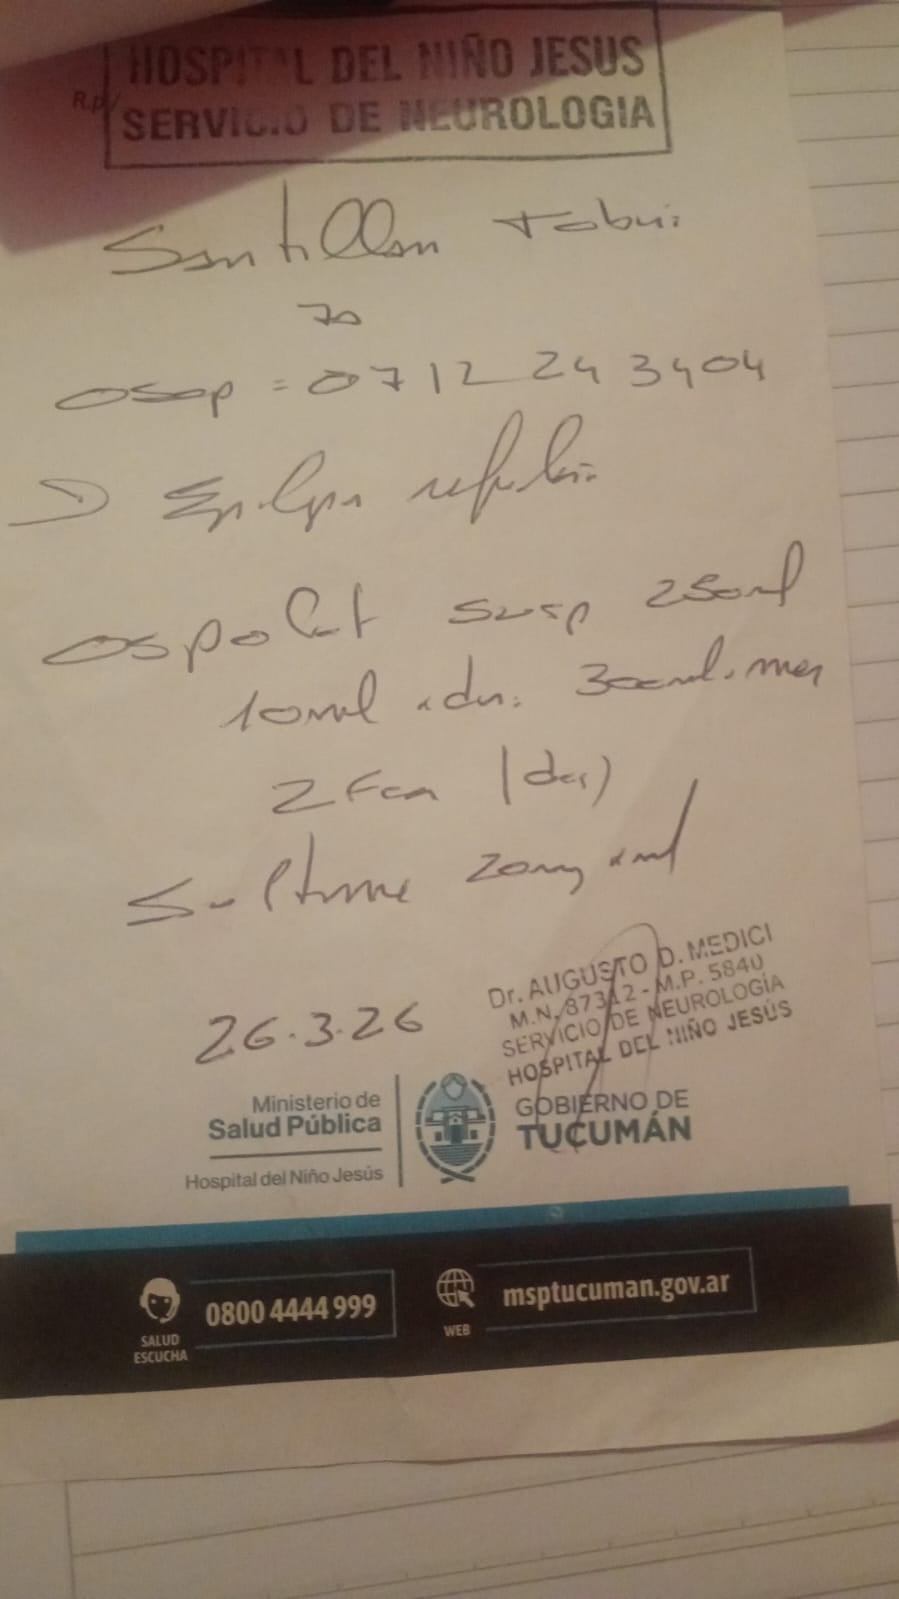 HOSPITAL DEL NIÑO JESUS
R.p/
SERVICIO DE NEUROLOGIA
Santillan
OSEP = 0712 24 3404
D
Ospolot susp 250ml
10ml x dia. 300ml. mes
2 Fcos (dos)
Sultiame 20mg x ml
26.3.26
Dr. AUGUSTO D. MEDICI
M.N. 87312 - M.P. 5840
SERVICIO DE NEUROLOGÍA
HOSPITAL DEL NIÑO JESÚS
Ministerio de
Salud Pública
Hospital del Niño Jesús
GOBIERNO DE
TUCUMÁN
SALUD
ESCUCHA
0800 4444 999
WEB
msptucuman.gov.ar